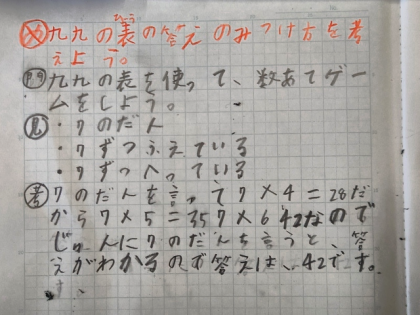 め 九九の表の答えのみつけ方を考
えよう。
P.9 九九の表を使って、数あてゲー
ムをしよう。
見 ・7のだん
・7ずつふえている
・7ずつへっている
考 7のだんを言って7×4=28だ
から7×5=35 7×6 42なので
じゅんに7のだんを言うと、答
えがわかるので答えは、42です。